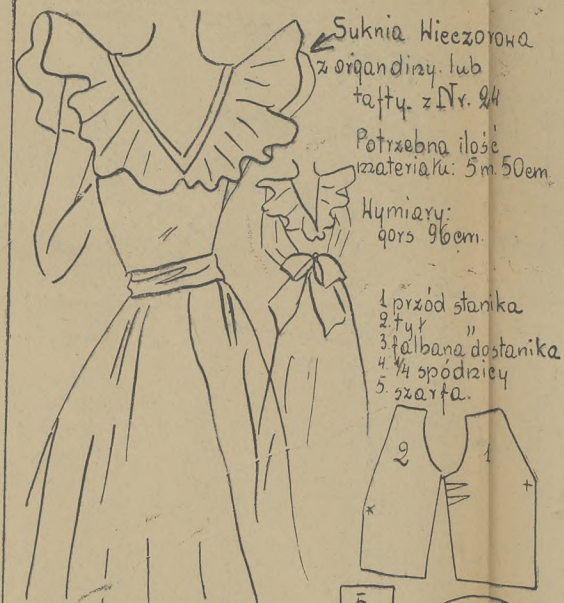 Suknia Wieczorowa
z organdiny lub
tafty. z Nr. 24
Potrzebna ilość
materiału: 5 m. 50 cm.
Wymiary:
gors 96 cm.
1 przód stanika
2. tył "
3. falbana do stanika
4. 1/4 spódnicy
5. szarfa.
2
1
5